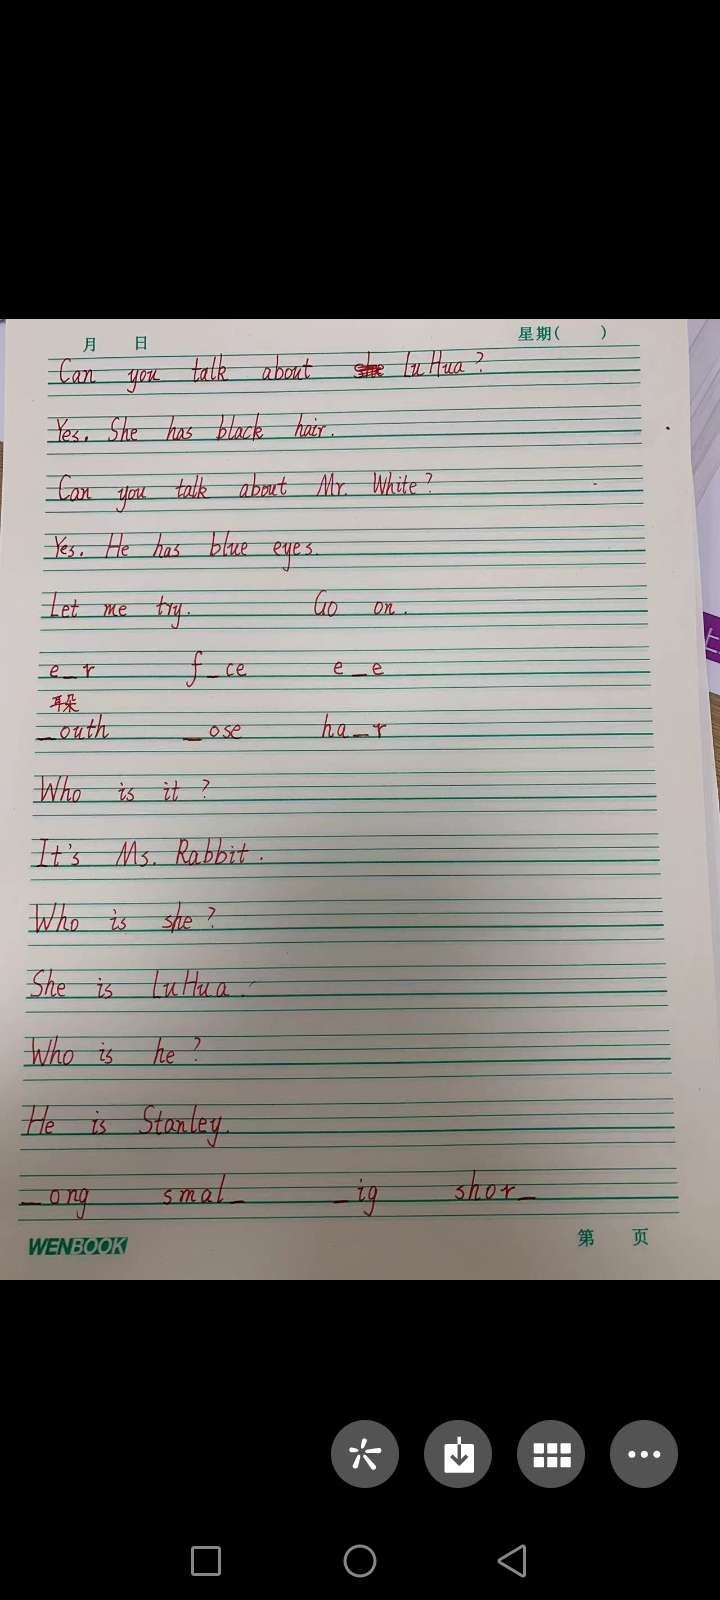 月 日 星期( )
Can you talk about she LuHua?
Yes. She has black hair.
Can you talk about Mr. White?
Yes. He has blue eyes.
Let me try. Go on.
e_r f_ce e_e
耳朵
_outh _ose ha_r
Who is it?
It's Ms. Rabbit.
Who is she?
She is LuHua.
Who is he?
He is Stanley.
_ong smal_ _ig shor_
WENBOOK 第 页